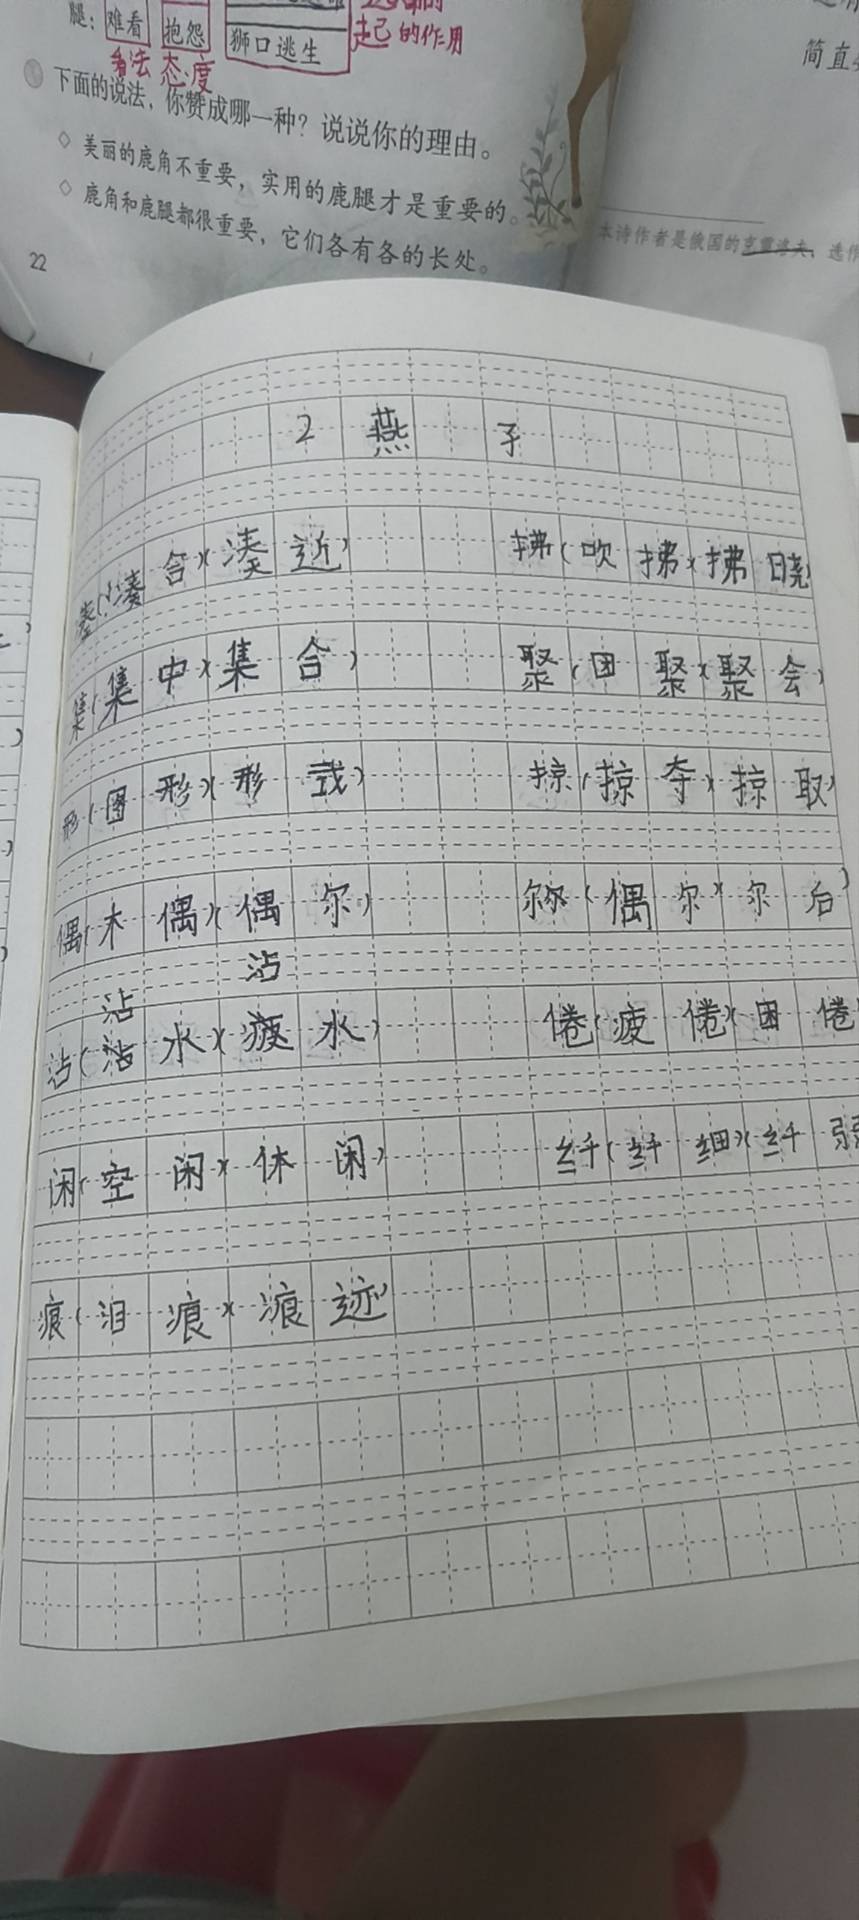 腿：难看 抱怨 狮口逃生 起的作用
看法 态度
简直
下面的说法，你赞成哪一种？说说你的理由。
◇ 美丽的鹿角不重要，实用的鹿腿才是重要的。
◇ 鹿角和鹿腿都很重要，它们各有各的长处。
22
本诗作者是俄国的克雷洛夫，选作
2 燕 子
凑(凑合)(凑近) 拂(吹拂)(拂晓)
集(集中)(集合) 聚(团聚)(聚会)
形(图形)(形式) 掠(掠夺)(掠取)
偶(木偶)(偶尔) 尔(偶尔)(尔后)
沾
沾
沾(沾水)(疲水) 倦(疲倦)(困倦
闲(空闲)(休闲) 纤(纤细)(纤弱
痕(泪痕)(痕迹)